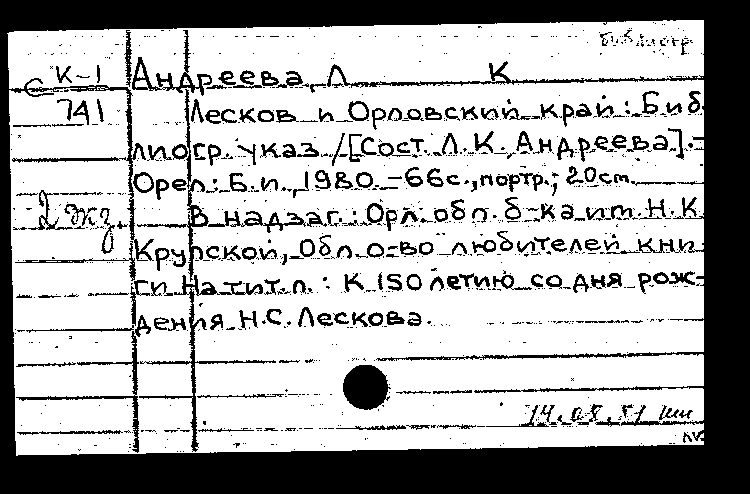 Библиогр
С К-1 Андреева, Л К
741 Лесков и Орловский край: Биб-
лиогр. указ. /[Сост. Л.К. Андреева].-
Орел: Б.и., 1980.-66с., портр.; 20см.
2 экз. В надзаг.: Орл. обл. б-ка им. Н.К.
Крупской, Обл. о-во любителей кни-
ги На тит.л.: К 150летию со дня рож-
дения Н.С. Лескова.